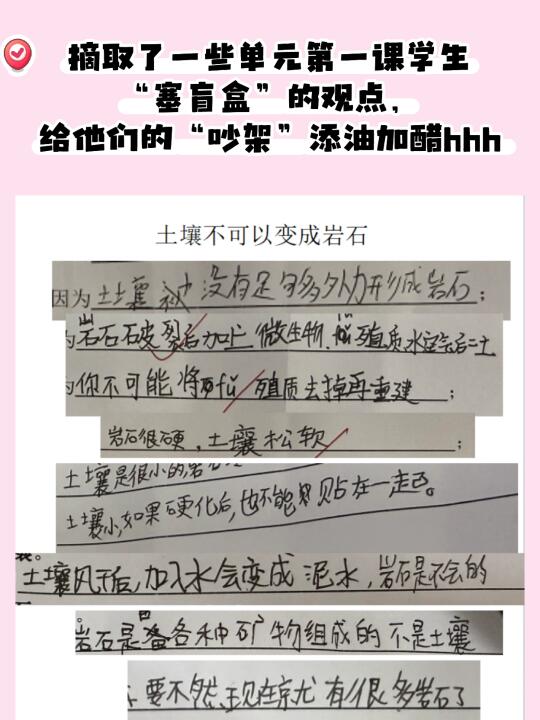 摘取了一些单元第一课学生
“塞盲盒”的观点,
给他们的“吵架”添油加醋hhh
土壤不可以变成岩石
因为土壤 没有足够多外力形成岩石;
岩石石皮裂后加上微生物、殖质水空气后=土
为你不可能将 殖质去掉再重建;
岩石很硬,土壤松软;
土壤是很小的岩石
土壤小,如果硬化后,也不能 贴在一起。
土壤风干后,加入水会变成泥水,岩石是不会的
岩石是 各种矿物组成的 不是土壤
要不然现在京尤有很多岩石了